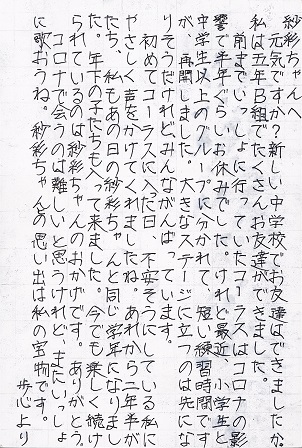 紗彩ちゃんへ
元気ですか？新しい中学校でお友達はできましたか。
私は五年B組でたくさんお友達ができました。
前までいっしょに行っていたコーラスはコロナの影
響で半年ぐらいお休みでした。けれど最近、小学生と
中学生以上のグループに分かれて、短い練習時間です
が、再開しました。大きなステージに立つのは先にな
りそうだけれどみんながんばっています。
初めてコーラスに入った日、不安そうにしている私に
やさしく声をかけてくれましたね。あれから二年半が
たち、私もあの日の紗彩ちゃんと同じ学年になりまし
た。年下の子たちも入って来ました。今でも楽しく続け
られているのは紗彩ちゃんのおかげです。ありがとう。
コロナで会うのは難しいと思うけれど、またいっしょ
に歌おうね。紗彩ちゃんとの思い出は私の宝物です。
歩心より